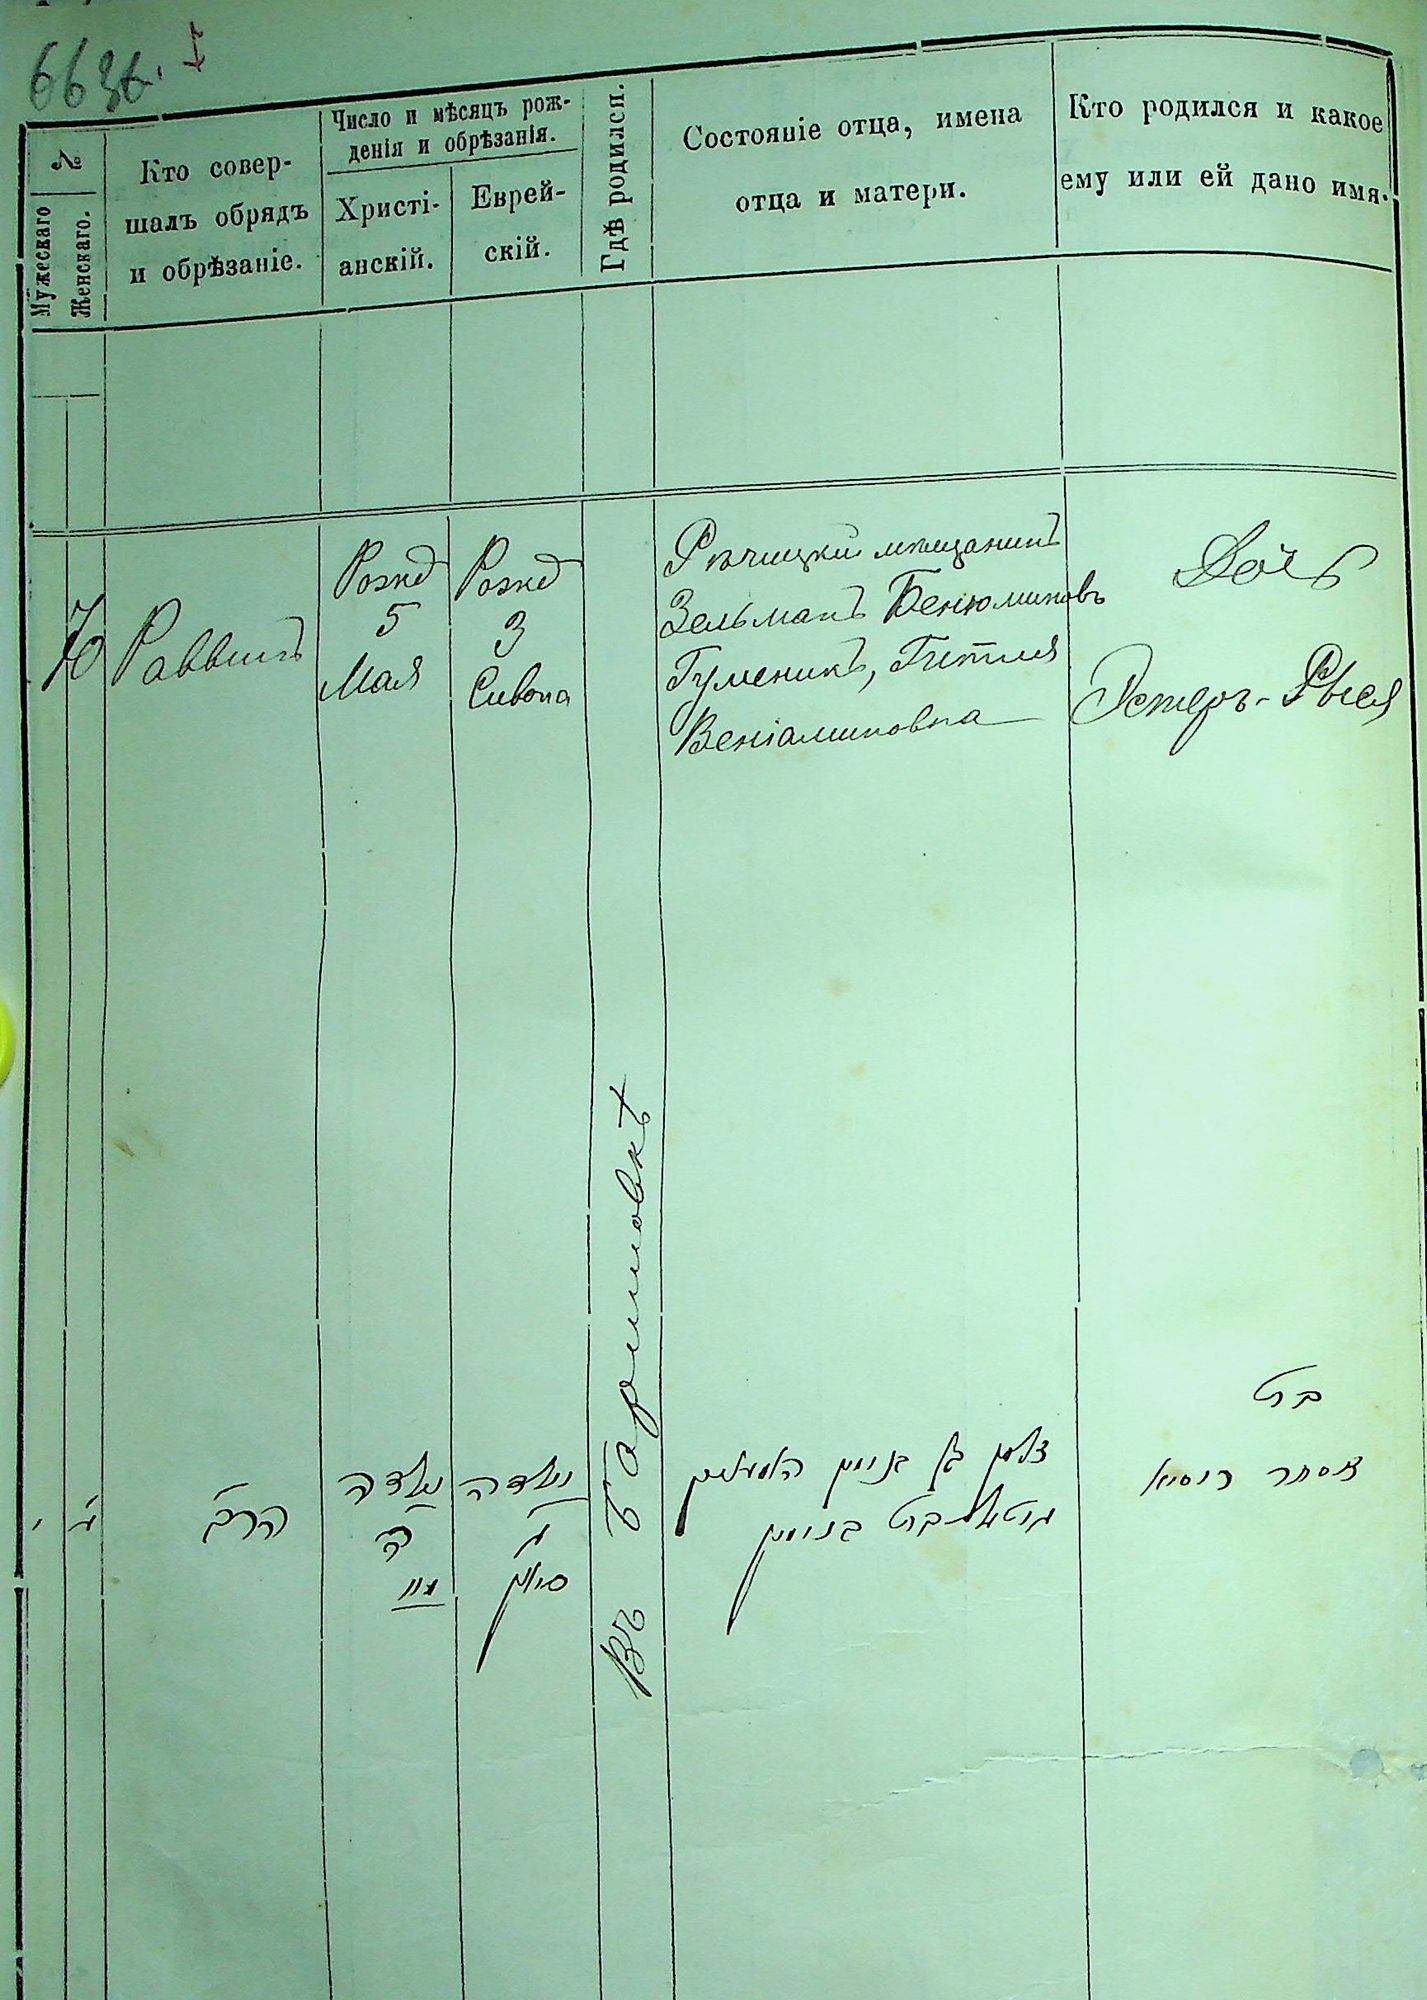 663
№
Мужескаго
Женскаго.
Кто совер-
шалъ обрядъ
и обрѣзаніе.
Число и мѣсяцъ рож-
денія и обрѣзанія.
Христі-
анскій.
Еврей-
скій.
Гдѣ родился.
Состояніе отца, имена
отца и матери.
Кто родился и какое
ему или ей дано имя.
Раввинъ
Рожд
5
Мая
Рожд
3
Сивона
Рѣчицкій мѣщанинъ
Зельманъ Бенюминовъ
Гуменикъ, Гитля
Веніаминовна
Дочь
Эстеръ-Рыся
Въ
הרב
נולדה
ה
מיי
נולדה
ג
סיון
זלמן בן בנימין
גיטל בת בנימין
בת
אסתר רוסיא